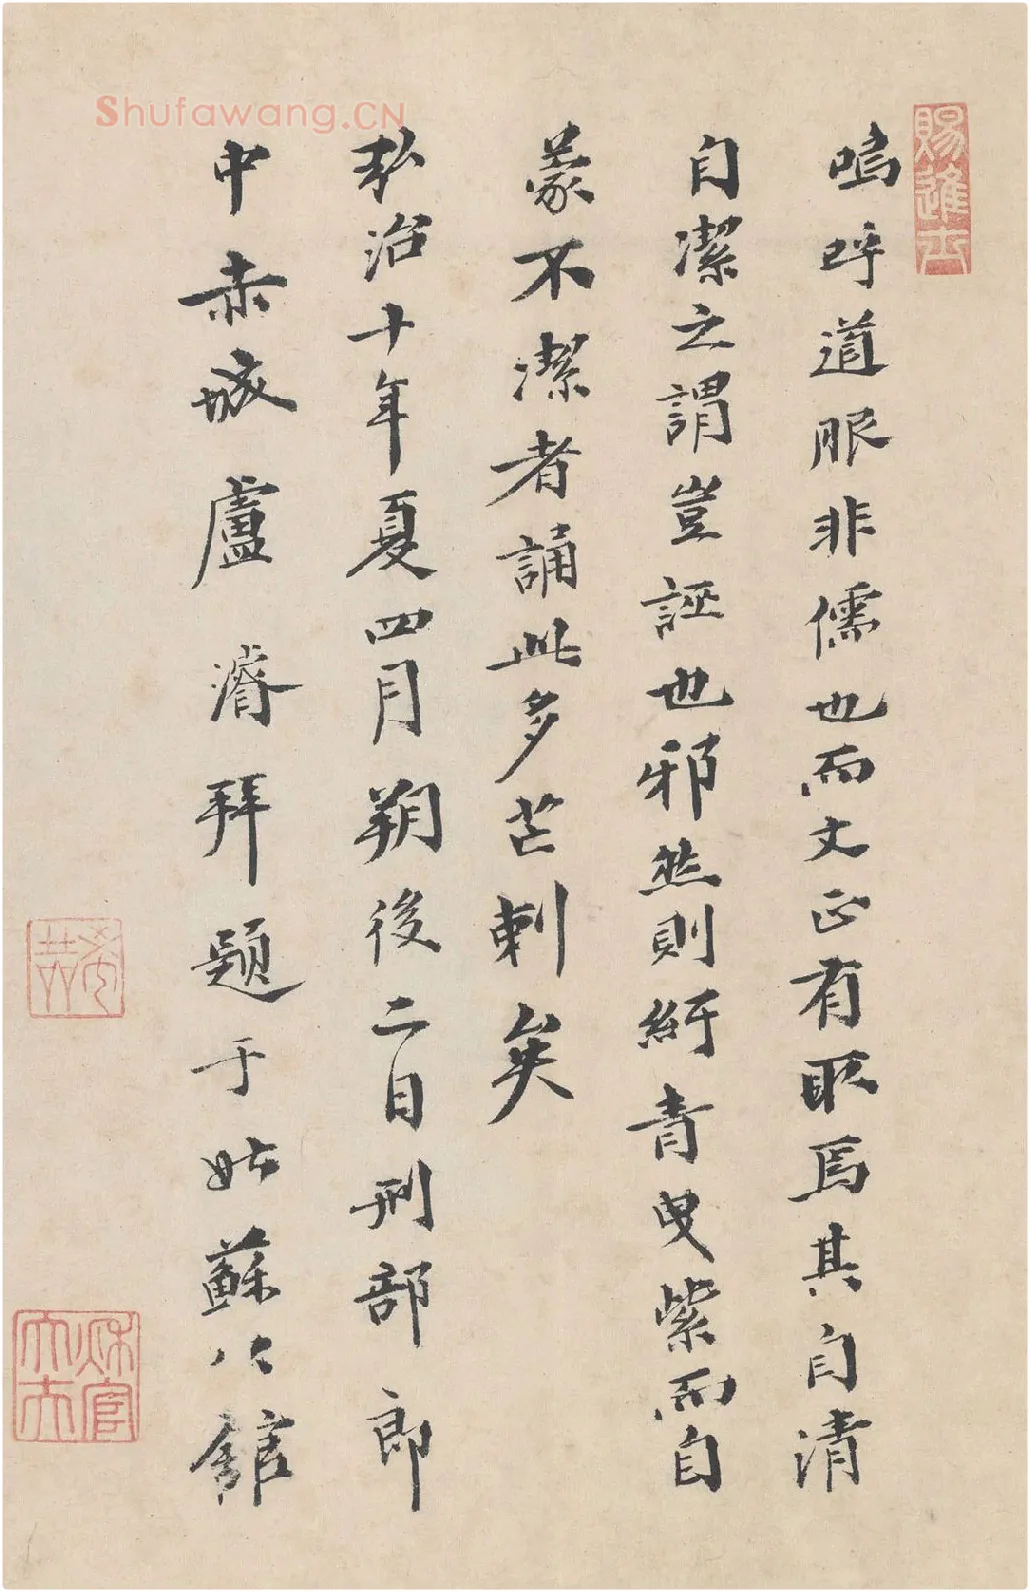 Shufawang.CN
賜進士
嗚呼道服非儒也而文正有取焉其自清
自潔之謂豈誣也邪然則紆青曳紫而自
蒙不潔者誦此多芒刺矣
弘治十年夏四月朔後二日刑部郎
中赤城盧濬拜題于姑蘇公館
希哲
秋官大夫